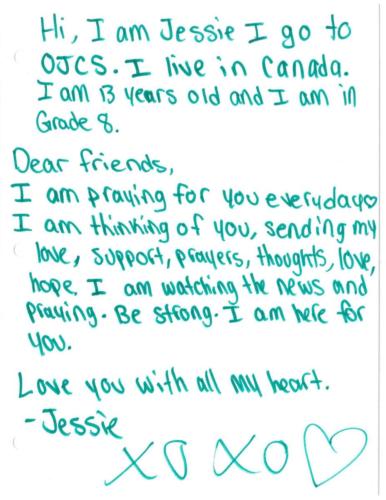 Hi, I am Jessie I go to
OJCS. I live in Canada.
I am 13 years old and I am in
Grade 8.
Dear friends,
I am praying for you everyday♡
I am thinking of you, sending my
love, support, prayers, thoughts, love,
hope. I am watching the news and
praying. Be strong. I am here for
you.
Love you with all my heart.
-Jessie
XOXO♡